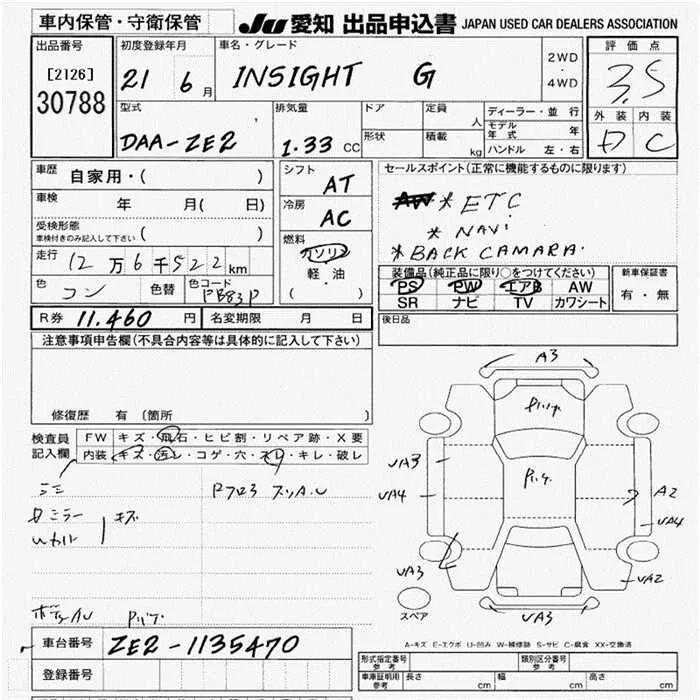 車内保管・守衛保管 JU 愛知 出品申込書 JAPAN USED CAR DEALERS ASSOCIATION
出品番号 初度登録年月 車名・グレード 評価点
[2126] 21 6月 INSIGHT G 2WD・4WD 3.5
30788 型式 排気量 ドア 定員 人 ディーラー・並行 外装 内装
DAA-ZE2 1.33 CC 形状 積載 kg モデル年式 年 D C
ハンドル 左・右
車歴 自家用・( ) シフト AT セールスポイント(正常に機能するものに限ります)
車検 年 月( 日) 冷房 AC AW * ETC
受検形態 ( ) * NAVi
車検付きのみ記入して下さい 燃料 * BACK CAMARA.
走行 12万6千522km ガソリン 装備品(純正品に限り○をつけてください) 新車保証書
色 コン 色替 色コード PB83P 軽・油 PS PW エアB AW 有・無
( ) SR ナビ TV カワシート
R券 11.460円 名変期限 月 日 後日品
注意事項申告欄(不具合内容等は具体的に記入して下さい)
修復歴 有 (箇所 )
検査員 FW キズ・飛石・ヒビ割・リペア跡・X要
記入欄 内装 キズ・汚レ・コゲ・穴・スレ・キレ・破レ
A3
UA3
UA4
A2
UA4
UA3
UA2
UA3
ミラー キズ
スペア
A-キズ E-エクボ U-凹み W-補修跡 S-サビ C-腐食 XX-交換済
車台番号 ZE2-1135470
登録番号
形式指定番号 参考 類別区分番号 参考
車庫証明用 参考 長さ cm 幅 cm 高さ cm